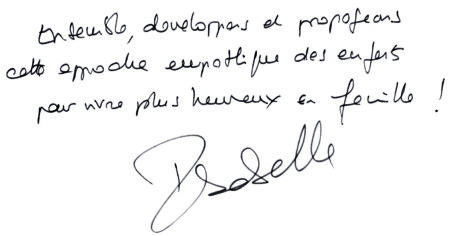 Ensemble, développons et propageons
cette approche empathique des enfants
pour vivre plus heureux en famille !
Isabelle